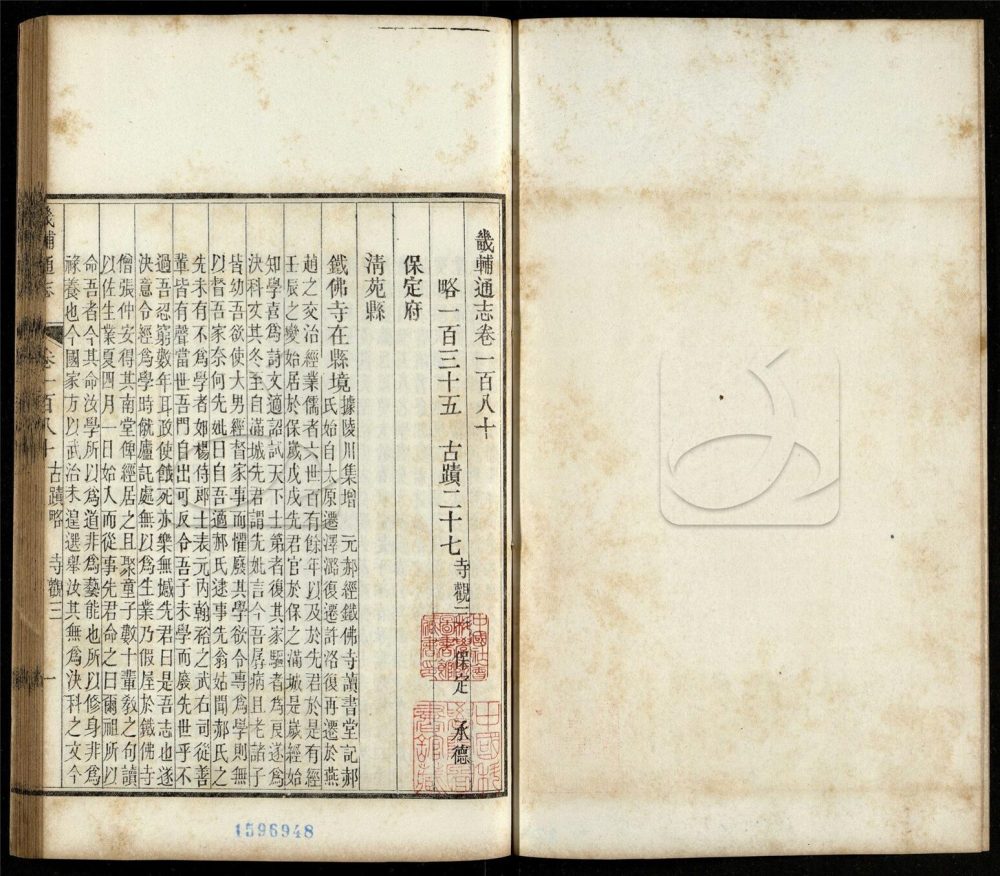 畿輔通志卷一百八十
略一百三十五 古蹟二十七 寺觀三 保定 承德
保定府
清苑縣
鐵佛寺在縣境 據陵川集增 元郝經鐵佛寺讀書堂記郝
氏始自太原遷澤潞復遷許洛復再遷於燕
趙之交治經業儒者六世百有餘年以及於先君於是有經
壬辰之變始居於保歲戊戌先君官於保之滿城是歲經始
知學喜爲詩文適詔試天下士第者復其家驅者爲良遂爲
決科文其冬至自滿城先君謂先妣言今吾孱病且老諸子
皆幼吾欲使大男經督家事而懼廢其學欲令專爲學則無
以督吾家奈何先妣曰自吾適郝氏逮事先翁姑聞郝氏之
先未有不爲學者如楊侍郎士表元內翰裕之武右司從善
輩皆有聲當世吾門自出可反令吾子未學而廢先世乎不
過吾忍窮數年耳政使餓死亦樂無憾先君曰是吾志也遂
決意令經爲學時僦廬託處無以爲生業乃假屋於鐵佛寺
僧張仲安得其南堂俾經居之且聚童子數十輩教之句讀
以佐生業夏四月一日始入而從事先君命之曰爾祖所以
命吾者今其命汝學所以爲道非爲藝能也所以修身非爲
祿養也今國家方以武治未遑選舉汝其無爲決科之文今
畿輔通志 卷一百八十 古蹟略 寺觀三 一
1596948